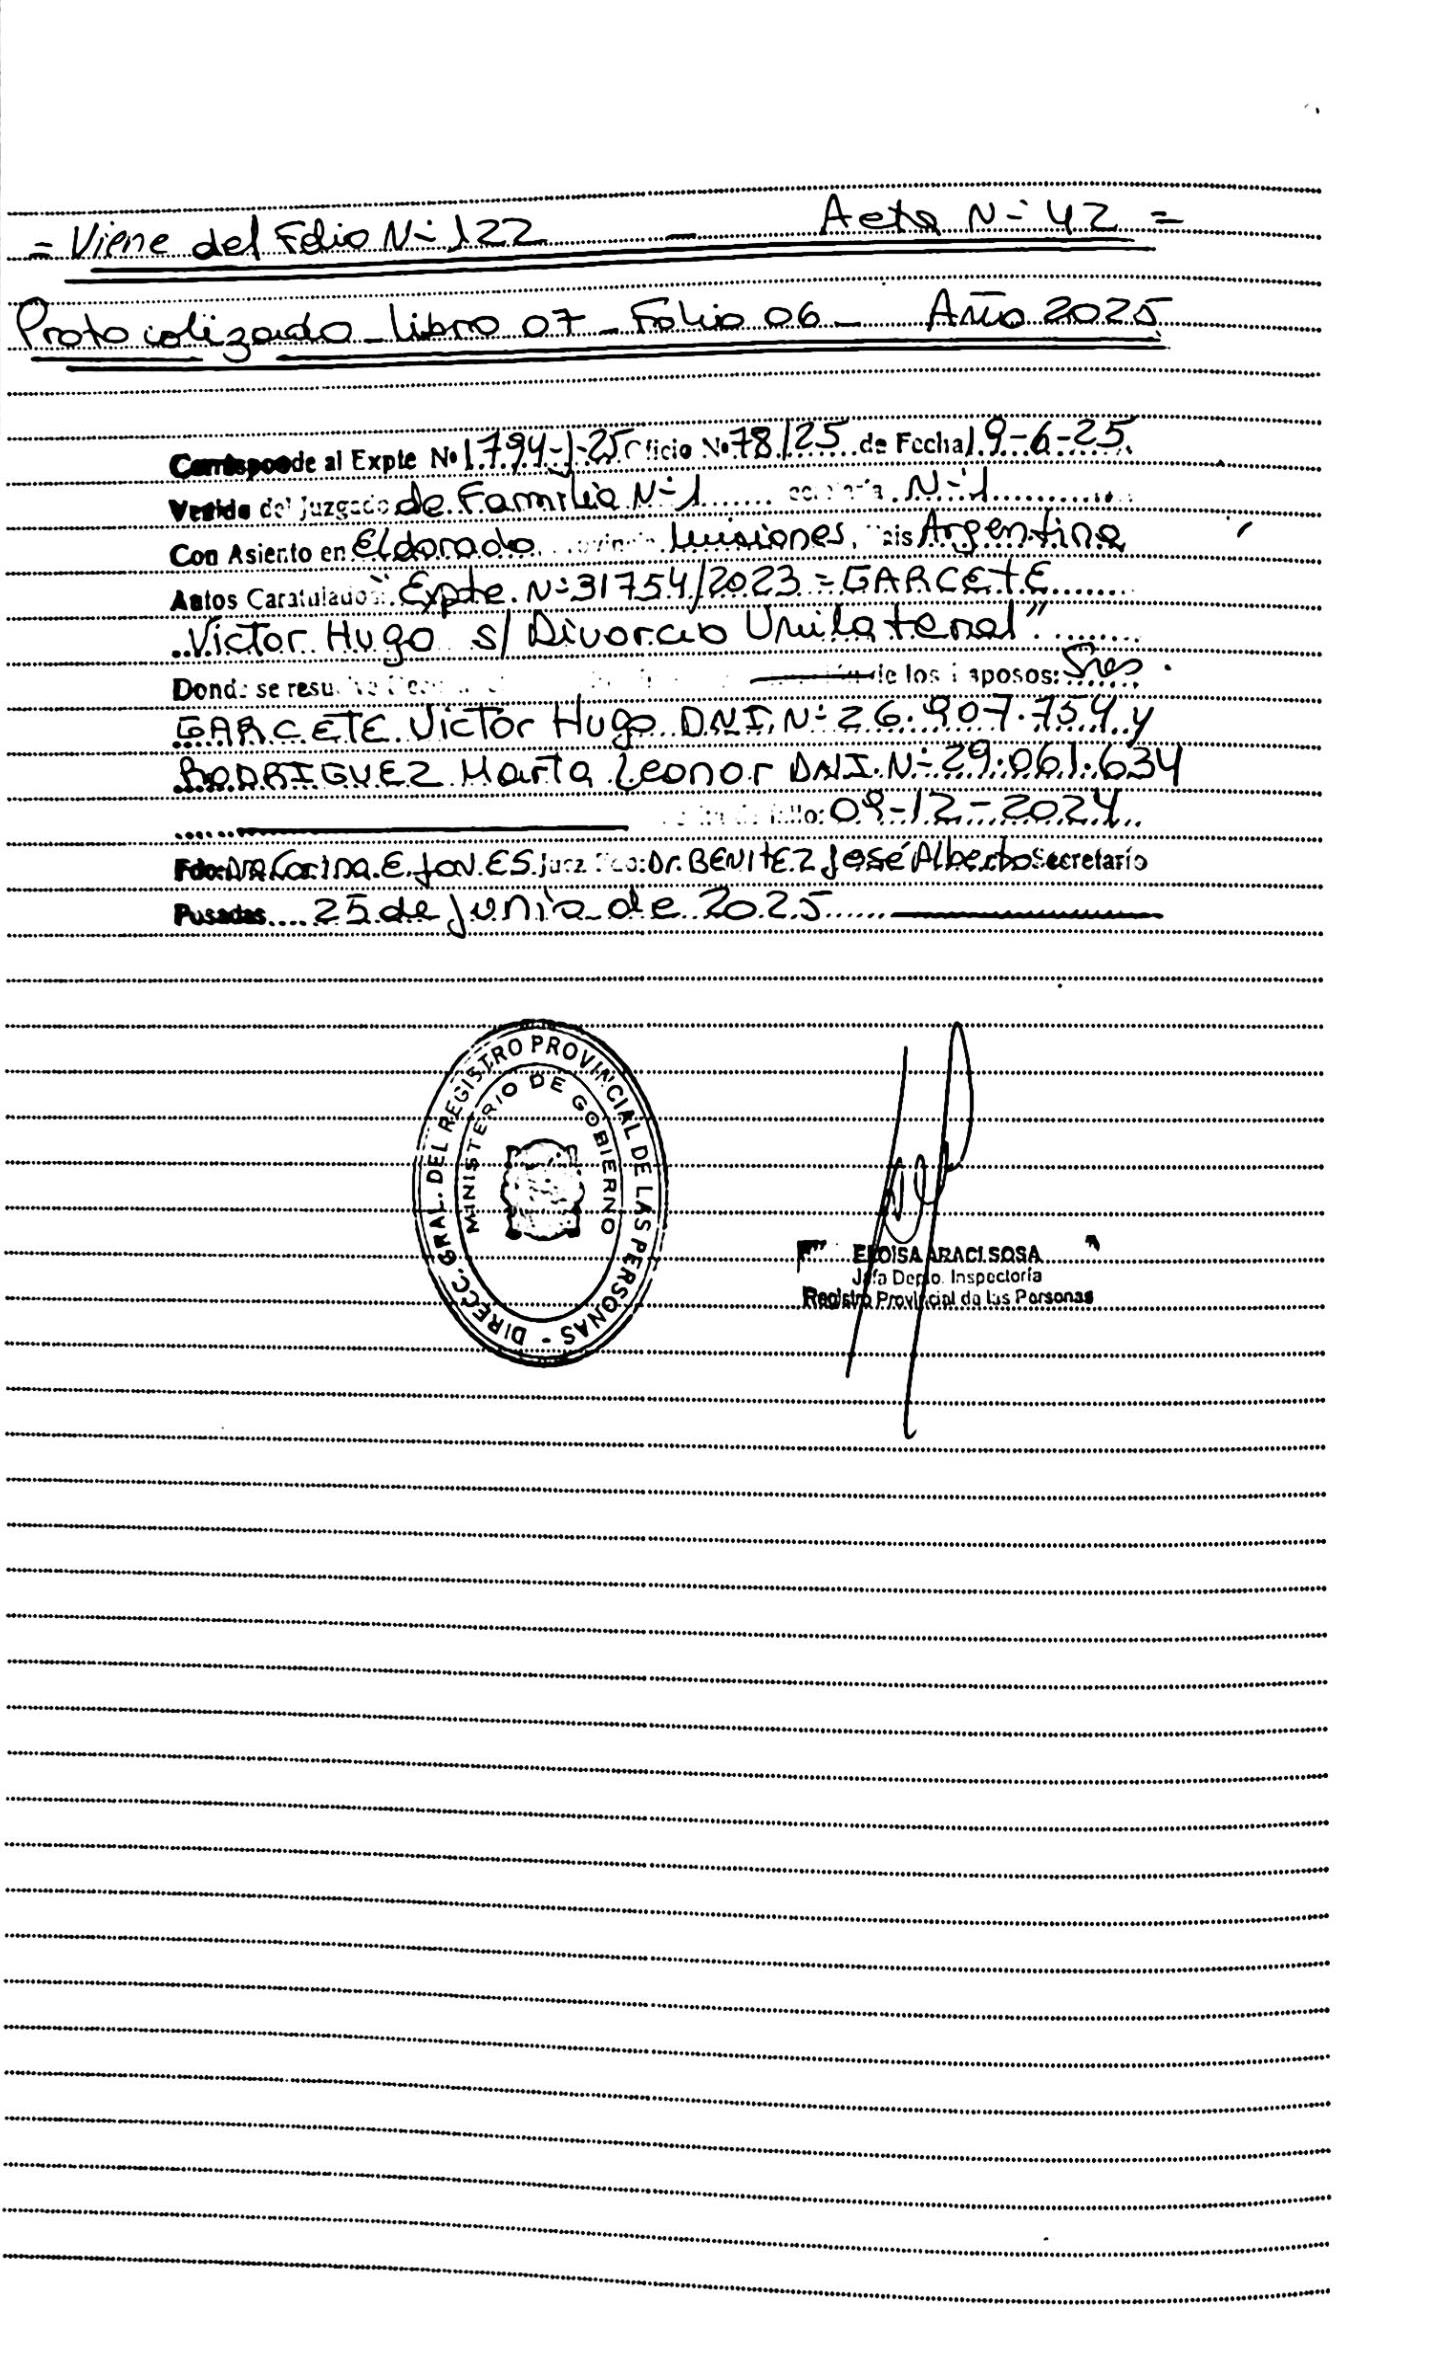 = Viene del Folio Nº 122 — Acta Nº 42 =
Protocolizado - Libro 07 - Folio 06 - Año 2025.
Corresponde al Expte Nº 1794-J-25 Oficio Nº 78/25 de Fecha 19-6-25.
Venido del Juzgado de Familia Nº 1 Secretaría Nº 1
Con Asiento en Eldorado Provincia Misiones, País Argentina
Autos Caratulados: "Expte. Nº 31754/2023 = GARCETE
Victor Hugo s/ Divorcio Unilateral"
Donde se de los Esposos: Sres
GARCETE Victor Hugo DNI. Nº 26.907.754 y
RODRIGUEZ Marta Leonor DNI. Nº 29.061.634
fallo: 09-12-2024
Fdo: Dra Corina E. JONES Juez Fdo: Dr. BENITEZ José Alberto Secretario
Posadas 25 de junio de 2025
DIRECC. GRAL. DEL REGISTRO PROVINCIAL DE LAS PERSONAS -
MINISTERIO DE GOBIERNO
ELOISA ARACI SOSA
Jefa Depto. Inspectoría
Registro Provincial de las Personas